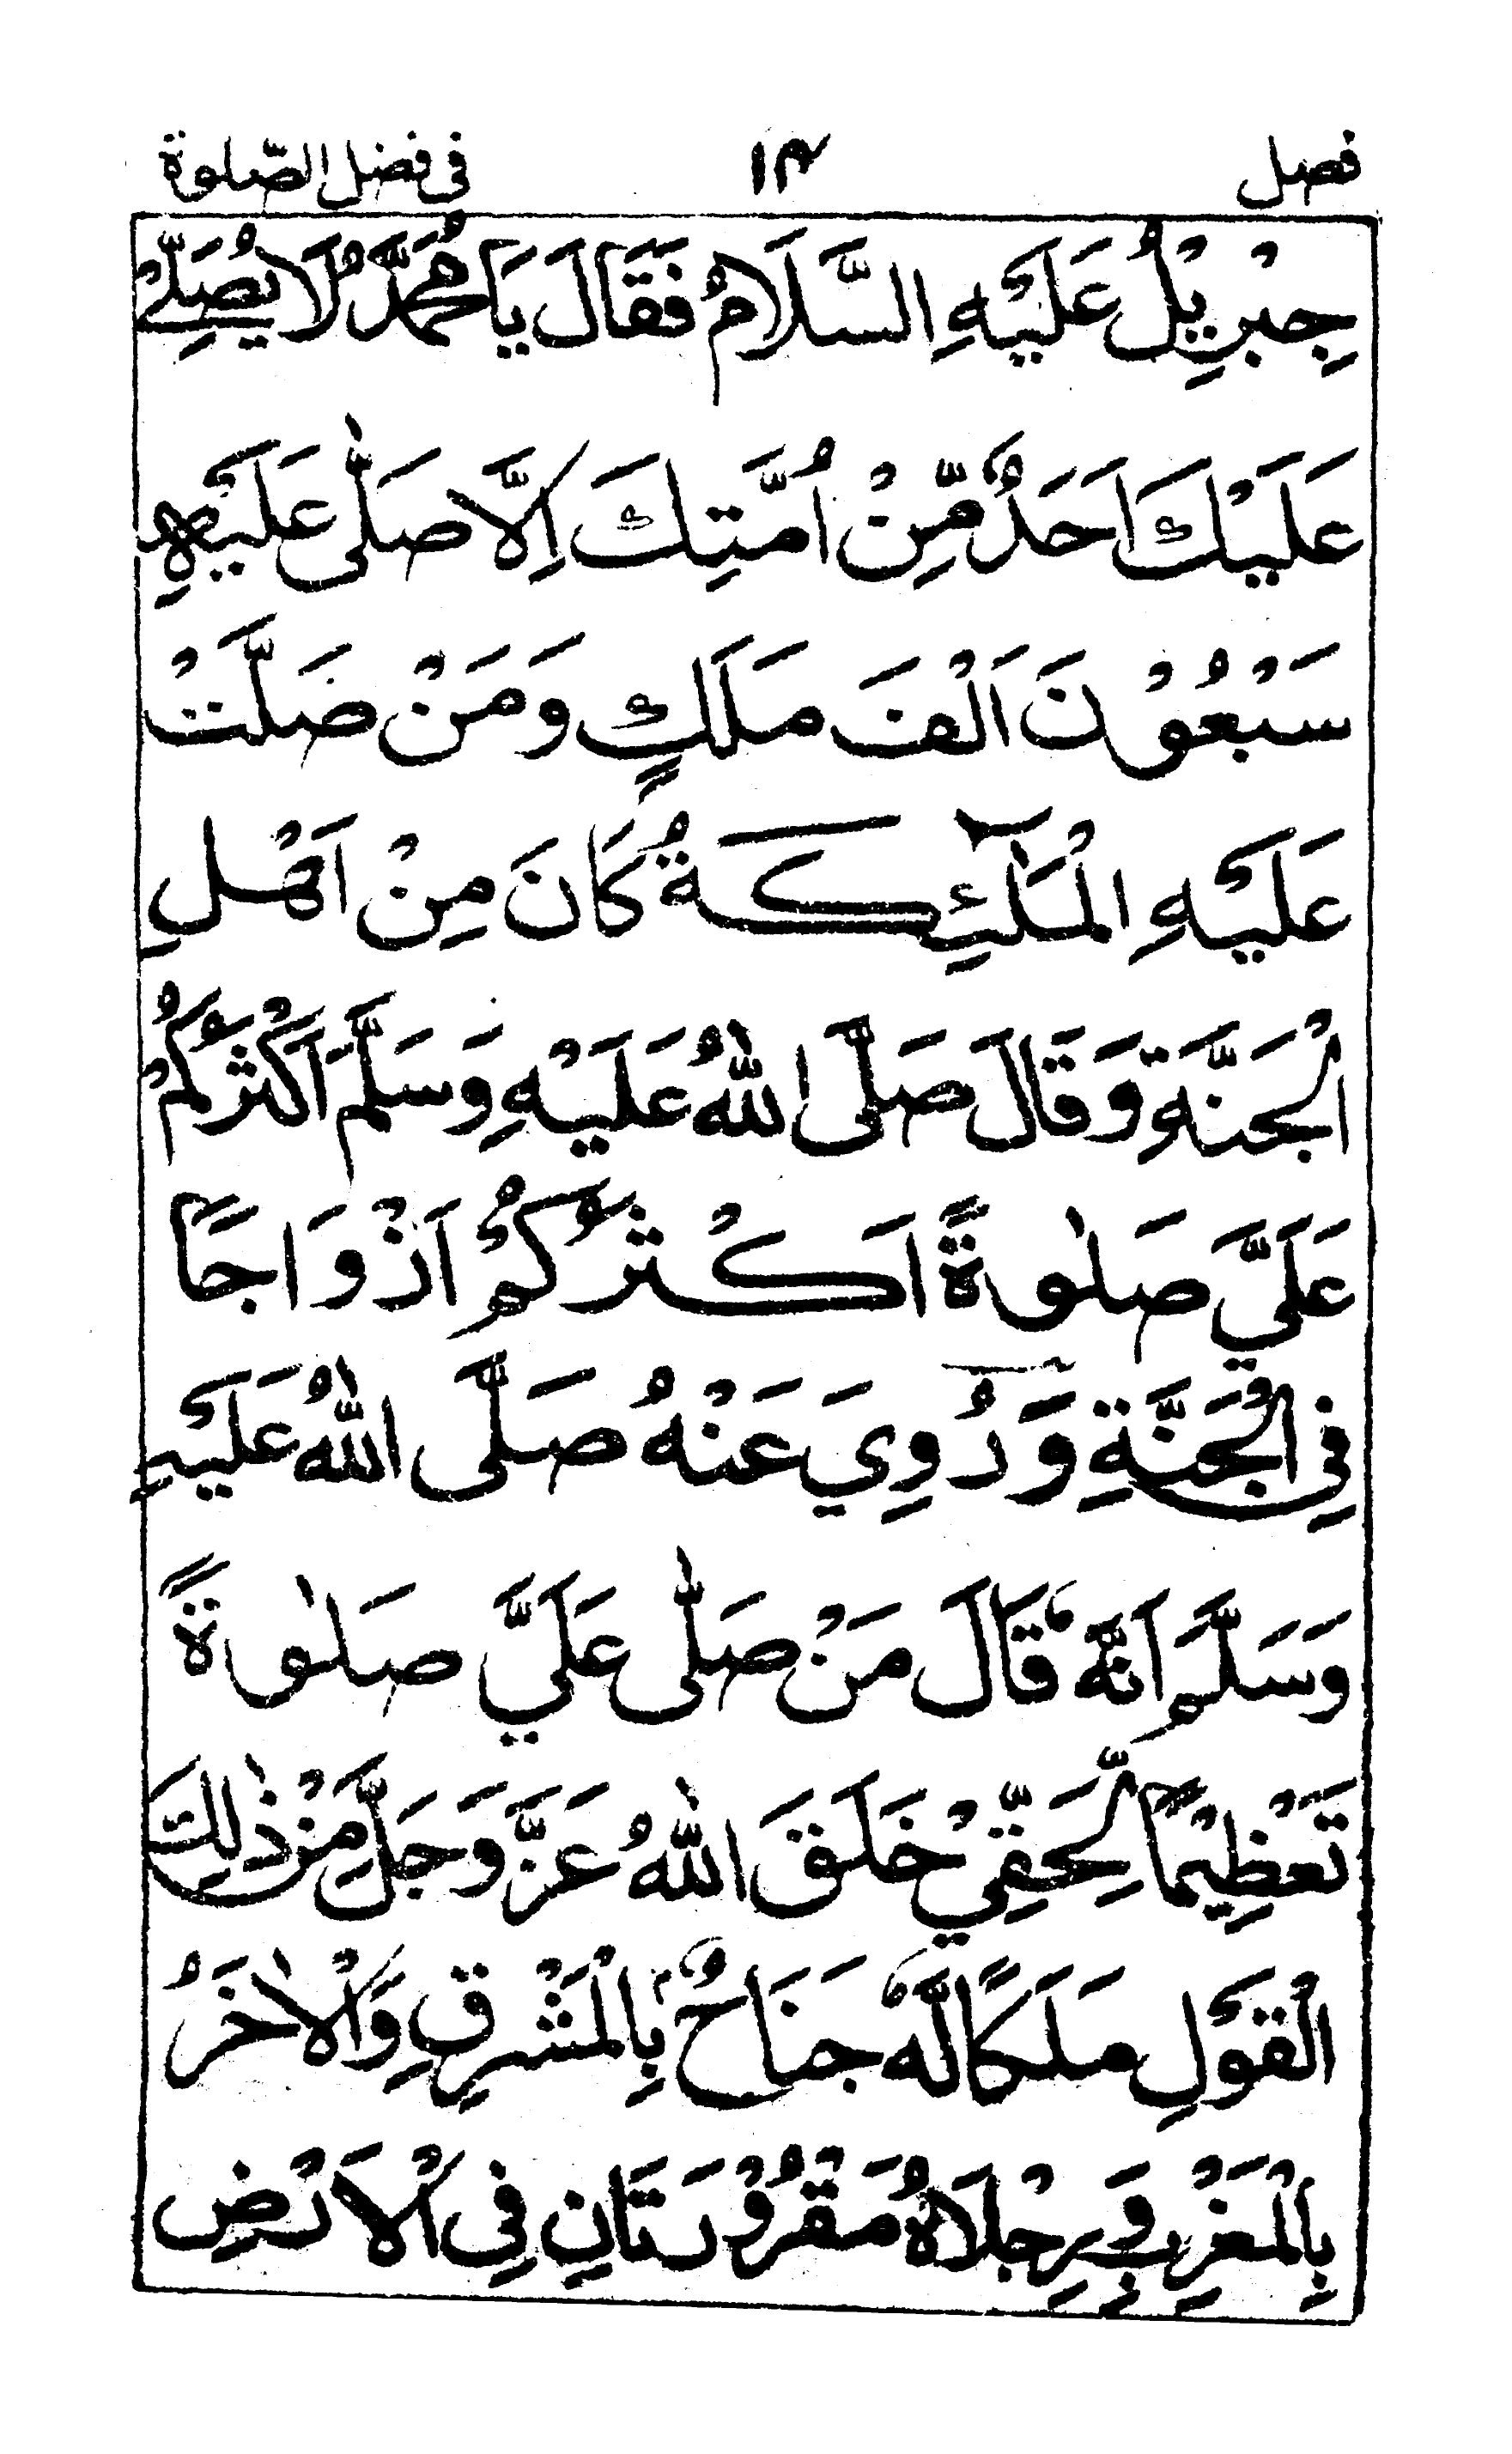 فصل ١٤ فى فضل الصّلوة
جِبْرِيْلُ عَلَيْهِ السَّلَامُ فَقَالَ يَا مُحَمَّدُ لَا يُصَلِّيْ
عَلَيْكَ اَحَدٌ مِّنْ اُمَّتِكَ اِلَّا صَلّٰى عَلَيْهِ
سَبْعُوْنَ اَلْفَ مَلَكٍ وَمَنْ صَلَّتْ
عَلَيْهِ الْمَلٰٓئِكَةُ كَانَ مِنْ اَهْلِ
الْجَنَّةِ وَقَالَ صَلَّى اللّٰهُ عَلَيْهِ وَسَلَّمَ اَكْثَرُكُمْ
عَلَيَّ صَلٰوةً اَكْثَرُكُمْ اَزْوَاجًا
فِي الْجَنَّةِ وَرُوِيَ عَنْهُ صَلَّى اللّٰهُ عَلَيْهِ
وَسَلَّمَ اَنَّهٗ قَالَ مَنْ صَلّٰى عَلَيَّ صَلٰوةً
تَعْظِيْمًا لِّحَقِّيْ خَلَقَ اللّٰهُ عَزَّ وَجَلَّ مِنْ ذٰلِكَ
الْقَوْلِ مَلَكًا لَّهٗ جَنَاحٌ بِالْمَشْرِقِ وَالْاٰخَرُ
بِالْمَغْرِبِ وَرِجْلَاهُ مَقْرُوْرَتَانِ فِي الْاَرْضِ